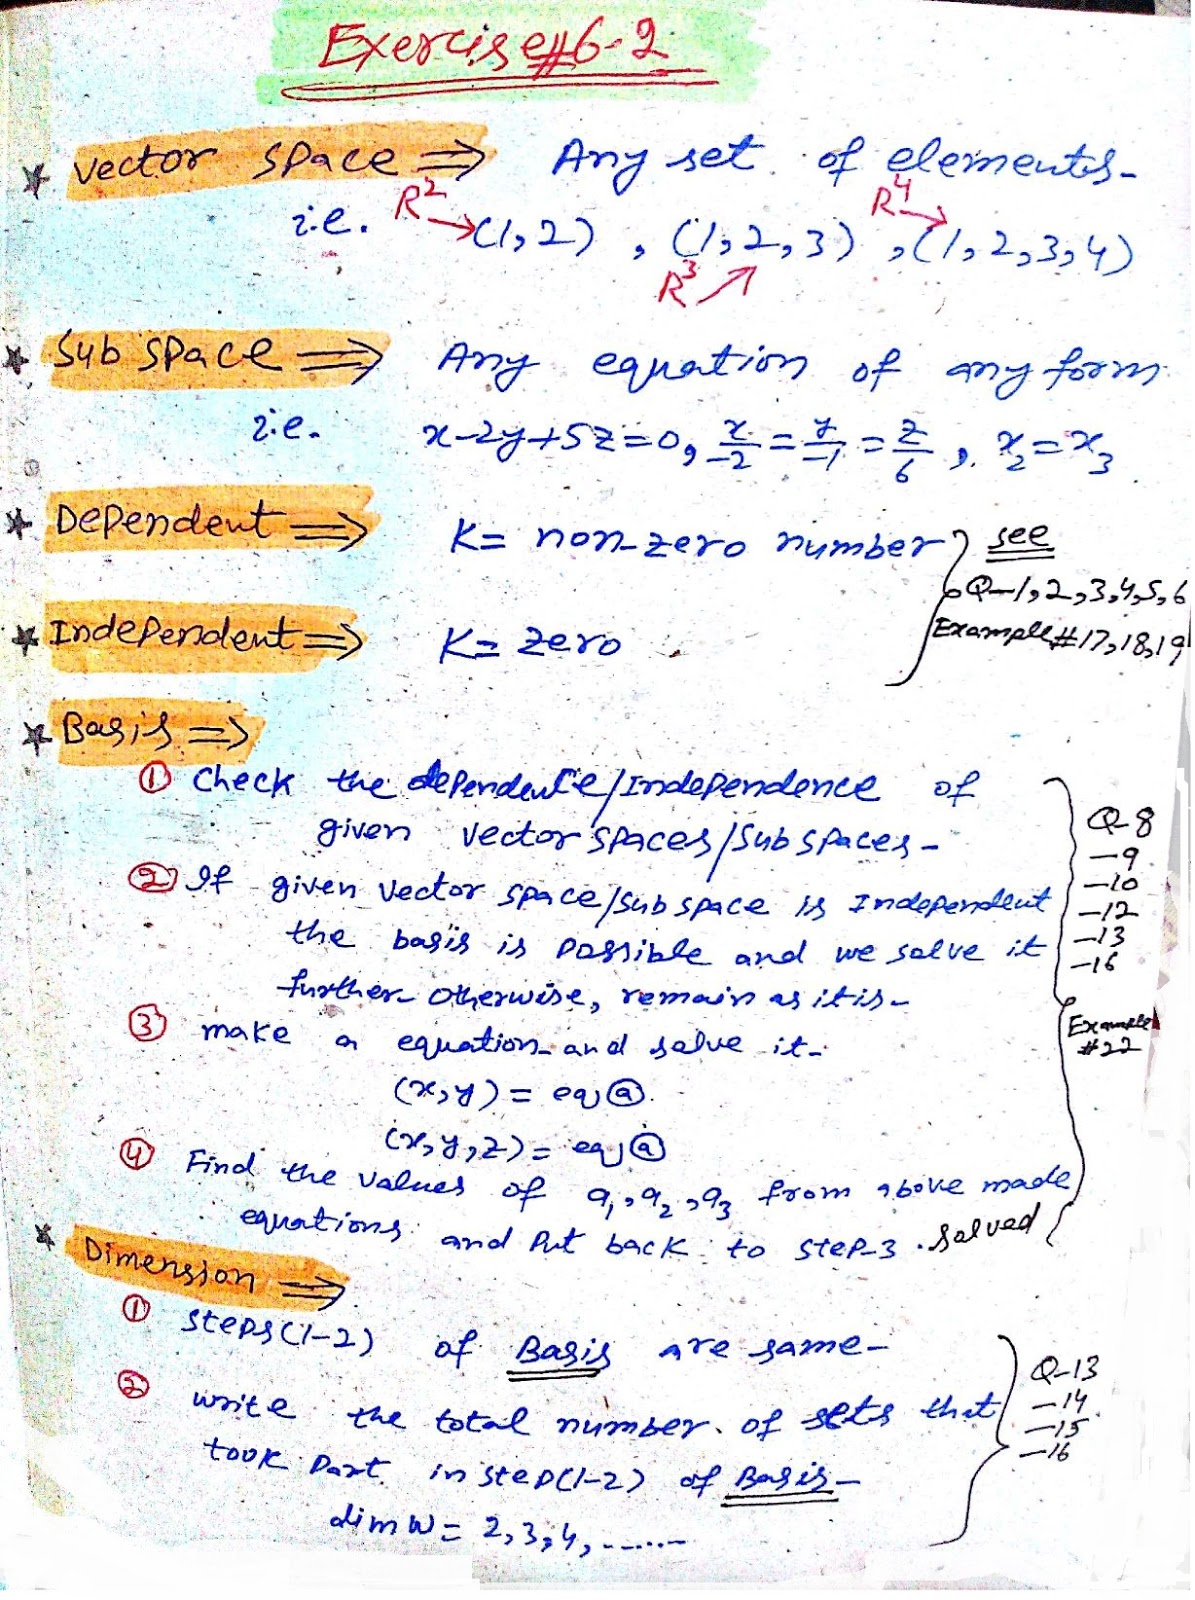 Exercise#6-2
* Vector Space ⇒ Any set of elements-
i.e. R² → (1,2) , (1,2,3) R³ ↗ , R⁴ → (1,2,3,4)
* Sub space ⇒ Any equation of any form
i.e. x-2y+5z=0, x/-2 = y/-1 = z/6 , x₂=x₃
* Dependent ⇒ K= non-zero number
* Independent ⇒ K= zero
see
Q-1,2,3,4,5,6
Example#17,18,19
* Basis ⇒
① Check the dependence/Independence of
given vector spaces/Subspaces-
② If given vector space/subspace is Independent
the basis is possible and we solve it
further otherwise, remain as it is-
③ make a equation and solve it-
(x,y) = eq ⓐ
(x,y,z) = eq ⓐ
④ Find the values of a₁,a₂,a₃ from above made
equations and Put back to step-3. solved
Q-8
-9
-10
-12
-13
-16
Example
#22
* Dimension ⇒
① steps(1-2) of Basis are same-
② write the total number of sets that
took Part in step(1-2) of Basis-
dim W = 2,3,4,------
Q-13
-14
-15
-16